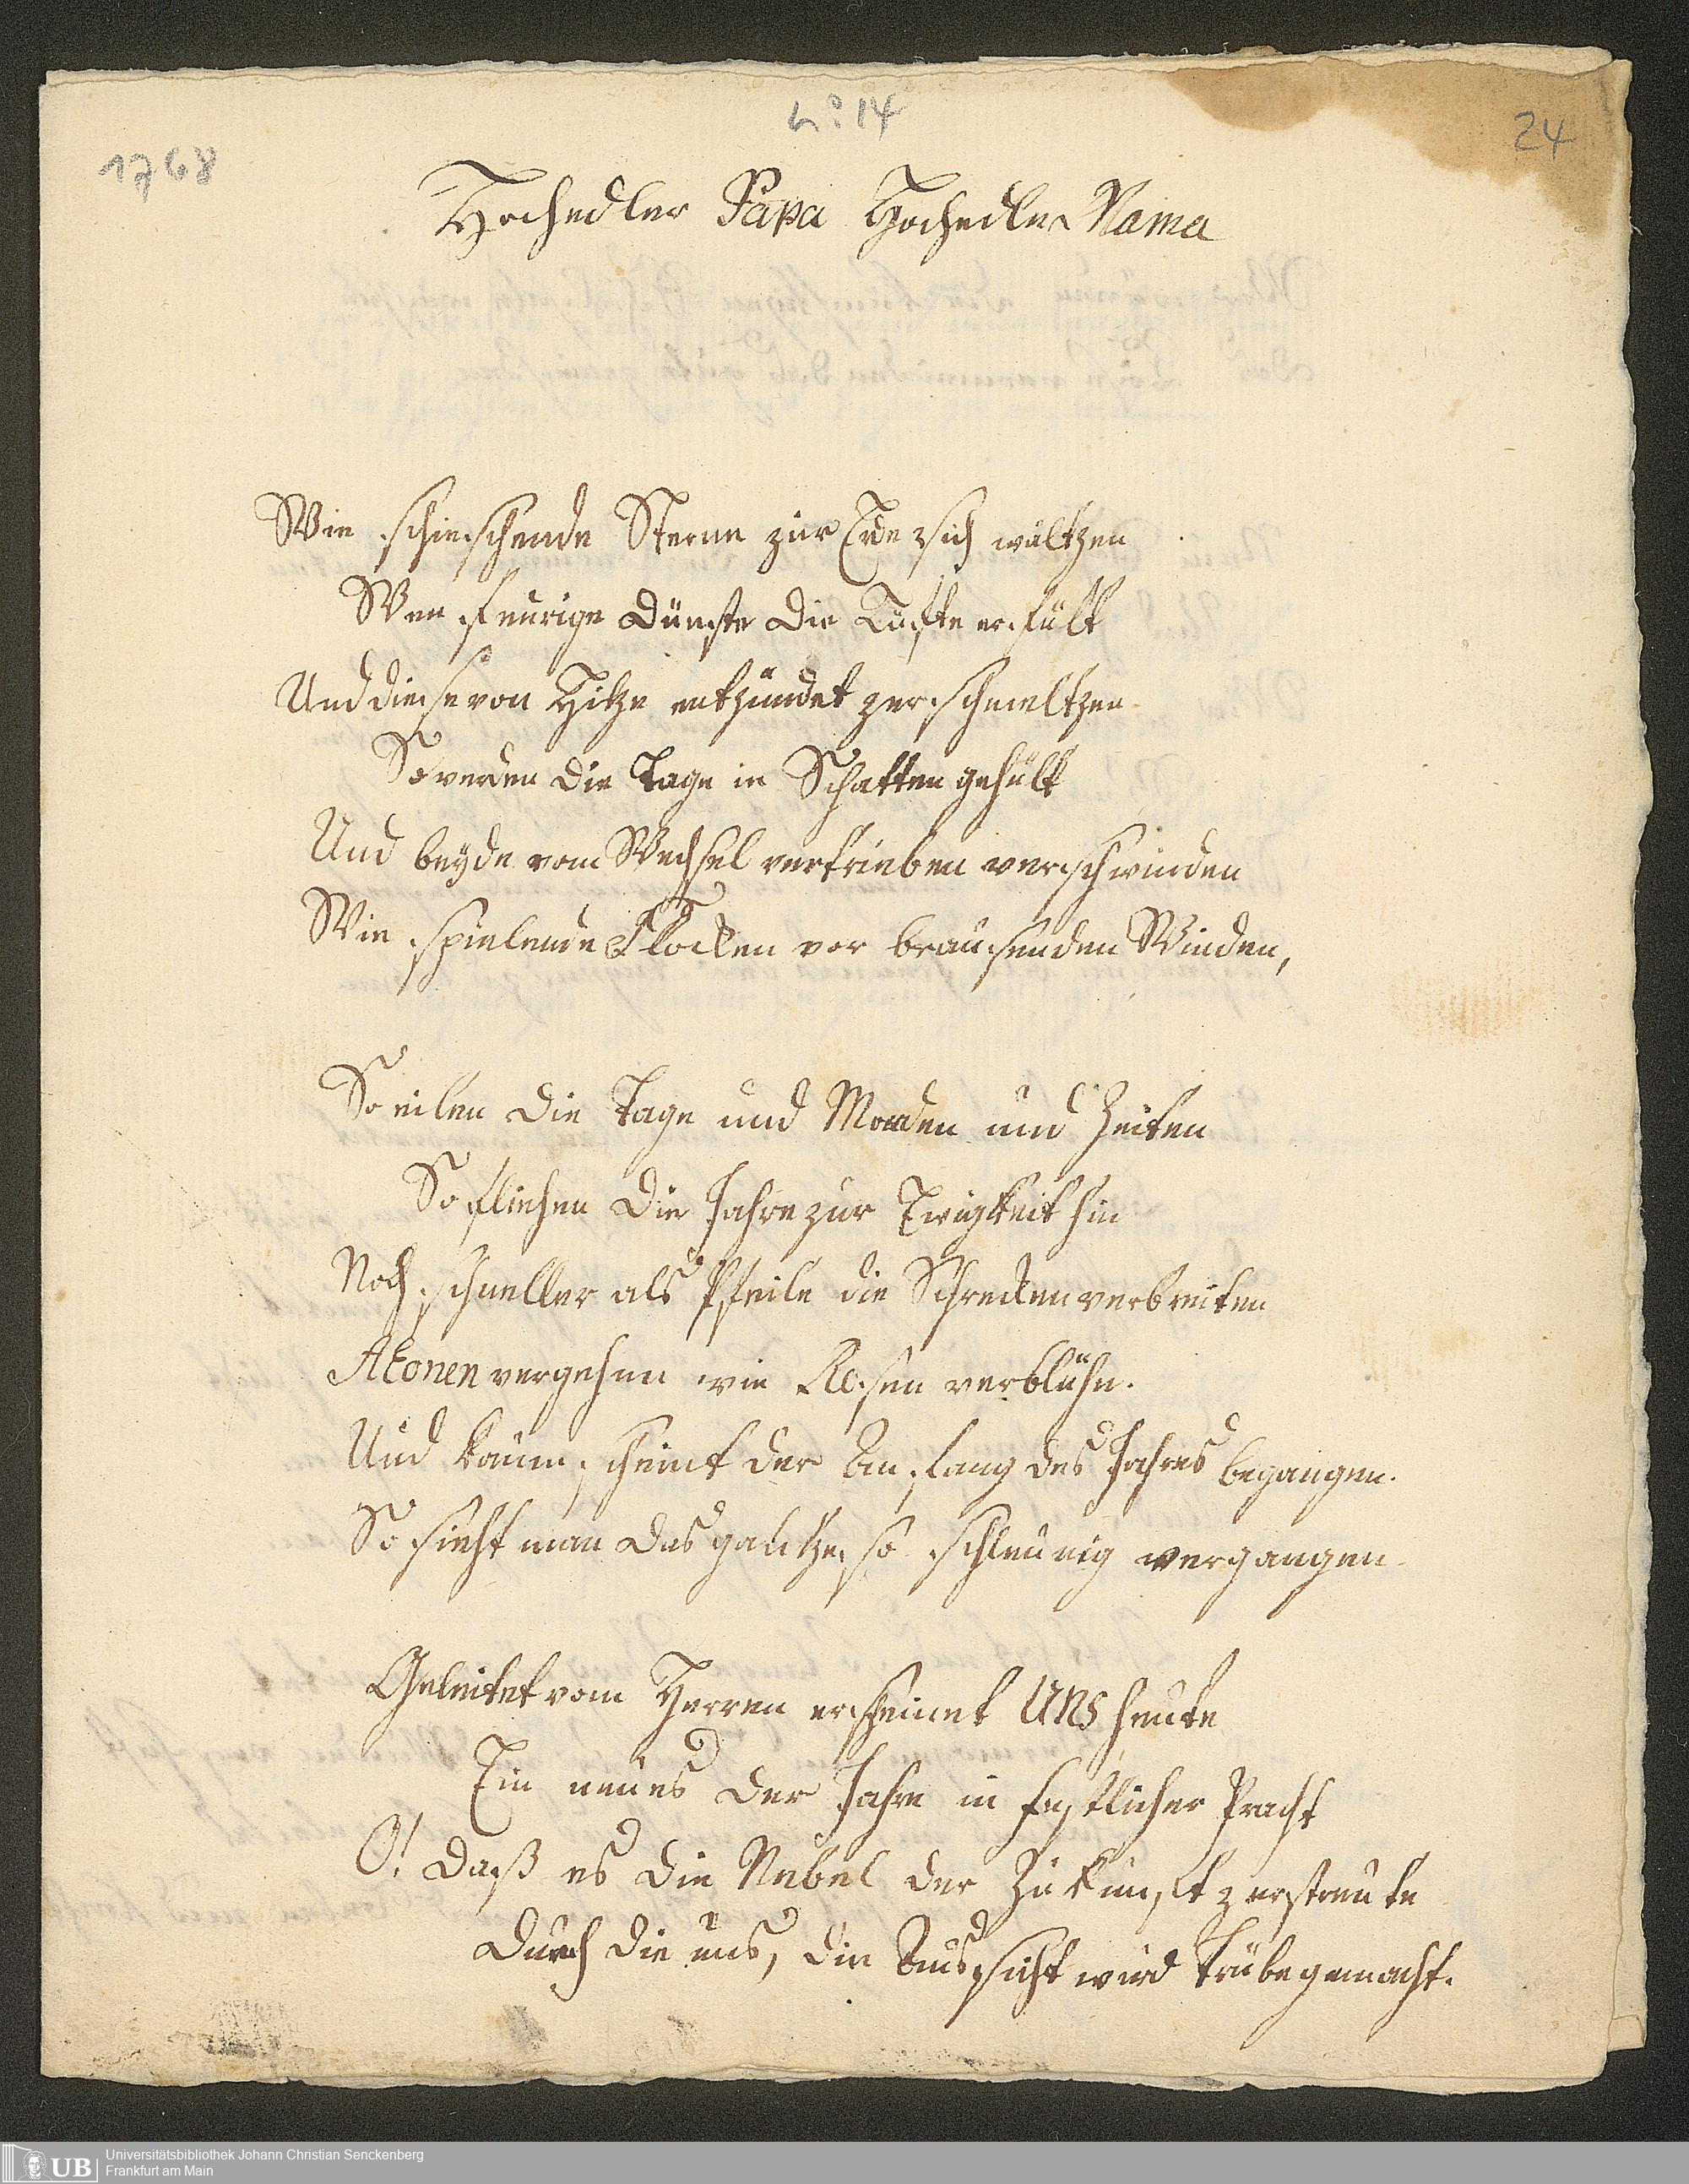 N:o 14
24
1768
Hochedler Papa Hochedle Mama
Wie schieschende Sterne zur Erde sich wältzen
Wen feurige Dünste die Lüfte erfült
Und diese von Hitze entzündet zerschmeltzen
So werden die Tage in Schatten gehült
Und beyde vom Wechsel vertrieben verschwinden
Wie spielende Flocken vor brausenden Winden,
So eilen die Tage und Monden und Zeiten
So fliehen die Jahre zur Ewigkeit hin
Noch schneller als Pfeile die Schrecken verbreiten
Aeonen vergehen wie Rosen verblühn.
Und kaum scheint der Anfang des Jahres begangen.
So sieht man das gantze so schleunig vergangen
Geleitet vom Herren erscheinet UNS heute
Ein neues der Jahre in festlicher Pracht
O! daß es die Nebel der Zukunft zerstreute
Durch die uns, die Aussicht wird trübe gemacht.
UB
Universitätsbibliothek Johann Christian Senckenberg
Frankfurt am Main